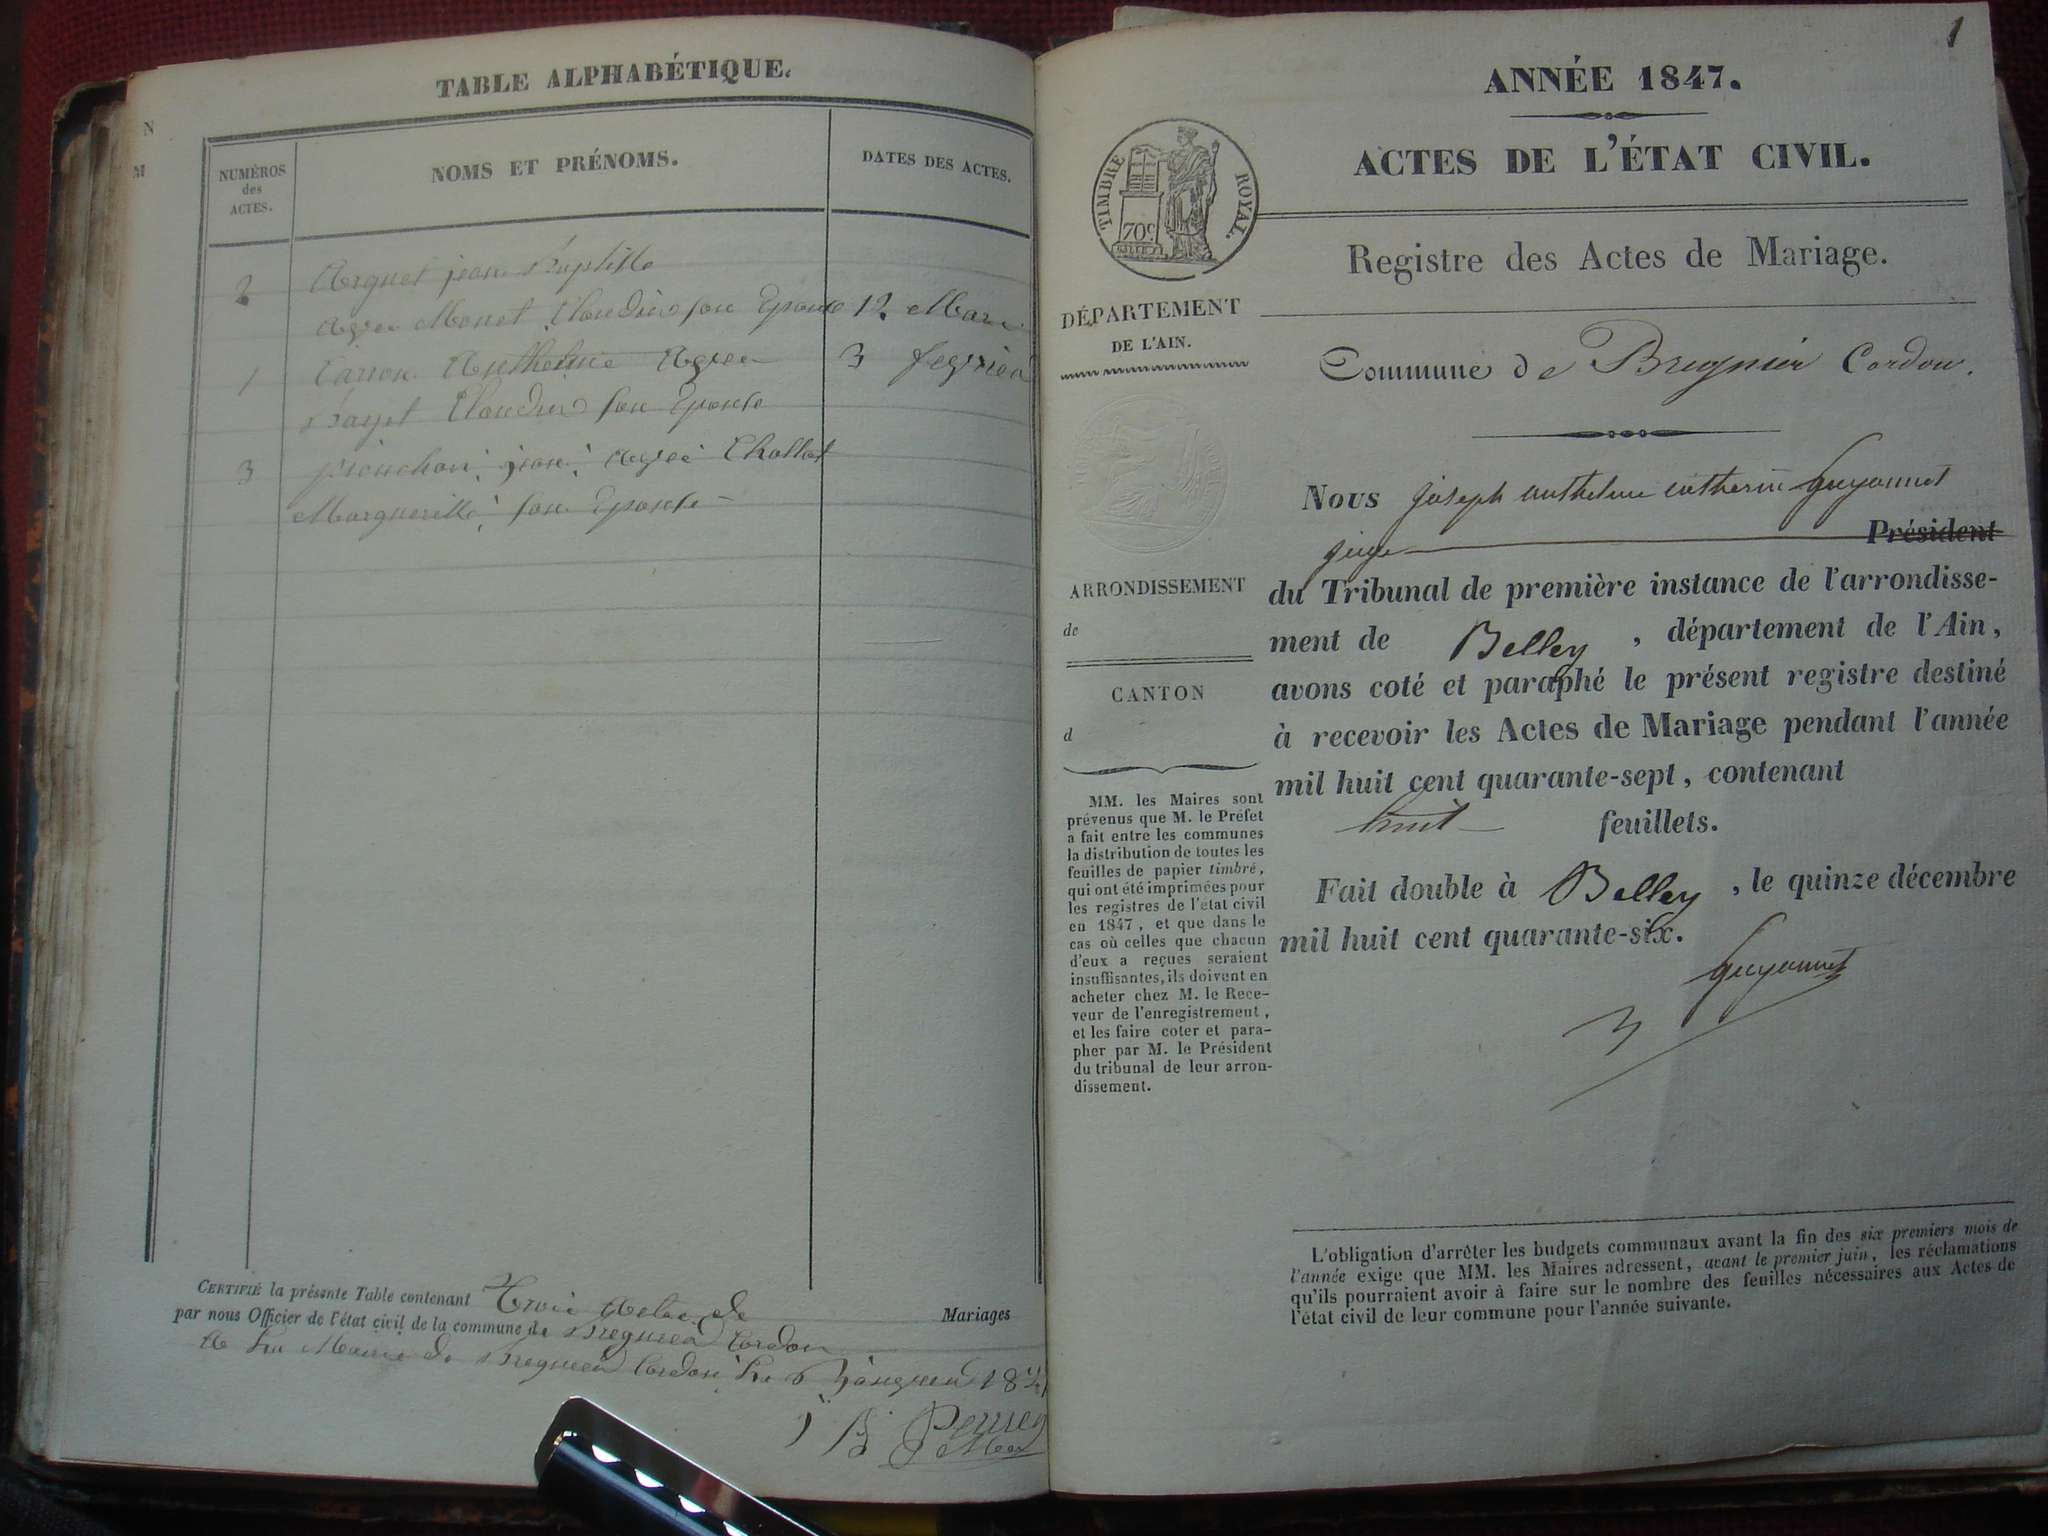 TABLE ALPHABÉTIQUE.
N
M
NUMÉROS
des
ACTES.
NOMS ET PRÉNOMS.
DATES DES ACTES.
2 jean Baptiste
avec Monet Claudine son Eponse 12 Mars
1 Anthelme Avec 3
Claudine son Eponse
3 jean avec Chollat
son Eponse
CERTIFIÉ la présente Table contenant Trois de Mariages
par nous Officier de l'état civil de la commune de Cordon
Mairie de Cordon Le 6
1
ANNÉE 1847.
ACTES DE L'ÉTAT CIVIL.
TIMBRE ROYAL.
70c
Registre des Actes de Mariage.
DÉPARTEMENT
DE L'AIN.
Commune de Bregnier Cordon.
Nous joseph anthelme Guyonnet
juge Président
du Tribunal de première instance de l'arrondisse-
ment de Belley, département de l'Ain,
avons coté et paraphé le présent registre destiné
à recevoir les Actes de Mariage pendant l'année
mil huit cent quarante-sept, contenant
huit feuillets.
Fait double à Belley, le quinze décembre
mil huit cent quarante-six.
Guyonnet
ARRONDISSEMENT
de
CANTON
d
MM. les Maires sont
prévenus que M. le Préfet
a fait entre les communes
la distribution de toutes les
feuilles de papier timbré,
qui ont été imprimées pour
les registres de l'état civil
en 1847, et que dans le
cas où celles que chacun
d'eux a reçues seraient
insuffisantes, ils doivent en
acheter chez M. le Rece-
veur de l'enregistrement,
et les faire coter et para-
pher par M. le Président
du tribunal de leur arron-
dissement.
L'obligation d'arrêter les budgets communaux avant la fin des six premiers mois de
l'année exige que MM. les Maires adressent, avant le premier juin, les réclamations
qu'ils pourraient avoir à faire sur le nombre des feuilles nécessaires aux Actes de
l'état civil de leur commune pour l'année suivante.